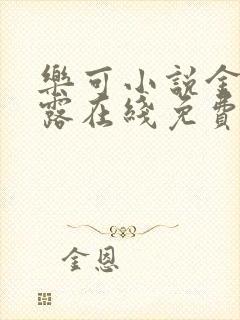 樂可小説全
露在綫免費
金恩